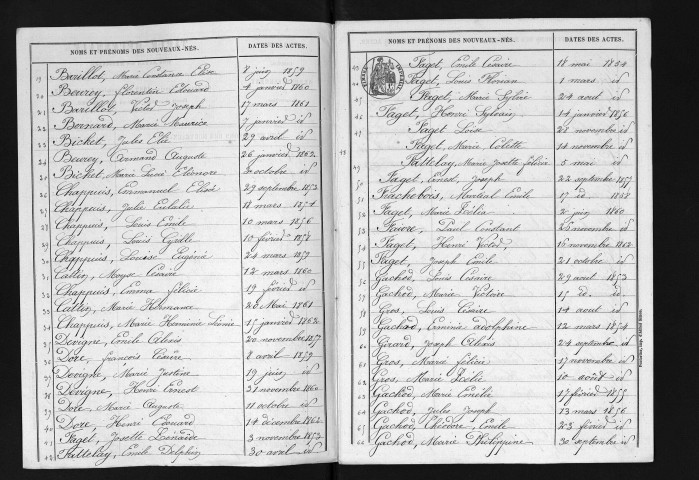 NOMS ET PRÉNOMS DES NOUVEAUX-NÉS. DATES DES ACTES.
19 Barillot, Marie Constance Elise 8 juin 1859
20 Beurey, Florentin Edouard 4 janvier 1860
21 Barillot, Victor Joseph 17 mars 1861
22 Bernard, Marie Maurice 7 janvier id
23 Bichet, Jules Elie 29 avril id
24 Beurey, Armand Auguste 26 janvier 1862
25 Bichet, Marie Léonie Eléonore octobre id
26 Chappuis, Emmanuel Elisé 29 septembre 1853
27 Chappuis, Julie Eulalie 18 mars 1854
28 Chappuis, Louis Emile 10 mars 1856
29 Chappuis, Louis Cyrille 10 février 1858
30 Chappuis, Louise Eugénie 24 mars 1859
31 Callin, Moyse Césaire 12 mars 1860
32 Chappuis, Emma Félicie 19 février id
33 Callin, Marie Hermance 20 Mai 1861
34 Chappuis, Marie Herminie Léonie 15 janvier 1862
35 Devigne, Emile Alexis 20 novembre 1857
36 Dore, François Césaire 2 avril 1859
37 Devigne, Marie Justine 19 juin id
38 Devigne, Henri Ernest 21 novembre 1860
39 Dore, Marie Auguste 11 octobre id
40 Dore, Henri Edouard 14 décembre 1862
41 Faget, Josette Zénaïde 3 novembre 1853
42 Fattelay, Emile Delphin 30 avril id
NOMS ET PRÉNOMS DES NOUVEAUX-NÉS. DATES DES ACTES.
43 Faget, Emile Césaire 18 mai 1854
Faget, Louis Florian 1 mars id
Faget, Marie Sylvie 24 aout id
46 Faget, Henri Sylvain 14 janvier 1856
47 Faget Louise 28 novembre id
Faget, Marie Colette 14 novembre id
49 Fattelay, Marie Josette Félicie 5 mai id
50 Faget, Ernest, Joseph 22 septembre 1857
51 Frachebois, Martial Emile 17 id. 1858
52 Faget, Marie Zéélia 2 juin 1860
53 Faivre, Paul Constant 25 novembre id
54 Faget, Henri Victor 16 novembre 1862
55 Faget, Joseph Emile 21 octobre id
56 Gachod, Louis Césaire 29 aout 1853
57 Gachod, Marie Victoire 15 id. id
58 Gros, Louis Césaire 14 aout id
59 Gachod, Erminie adolphine 12 mars 1854
60 Girard, Joseph Alexis 24 septembre id
61 Gros, Marie Félicie 17 novembre id
62 Gros, Marie Zéélie 10 août id
63 Gachod, Marie Emélie 17 février 1855
64 Gachod, Jules Joseph 13 mars 1856
65 Gachod, Théodore, Emile 23 février id
66 Gachod, Marie Philippine 30 septembre id